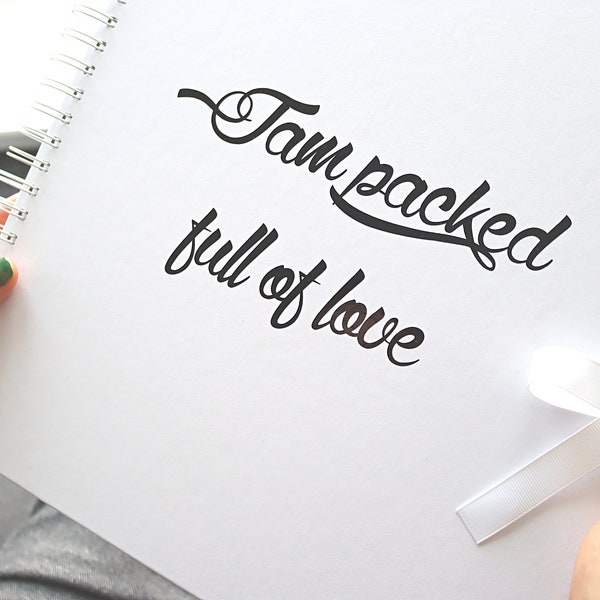 Jam packed
full of love